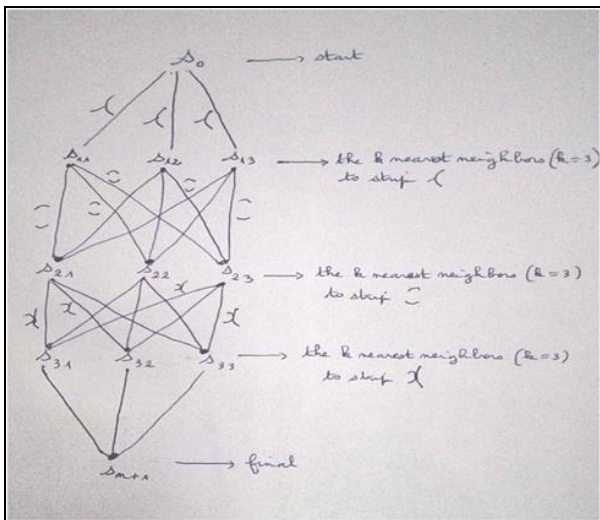 s₀ → start
s₁₁ s₁₂ s₁₃ → the k nearest neighbors (k=3)
to strip
s₂₁ s₂₂ s₂₃ → the k nearest neighbors (k=3)
to strip
x x x x
s₃₁ s₃₂ s₃₃ → the k nearest neighbors (k=3)
to strip x
sₙ₊₁ → final